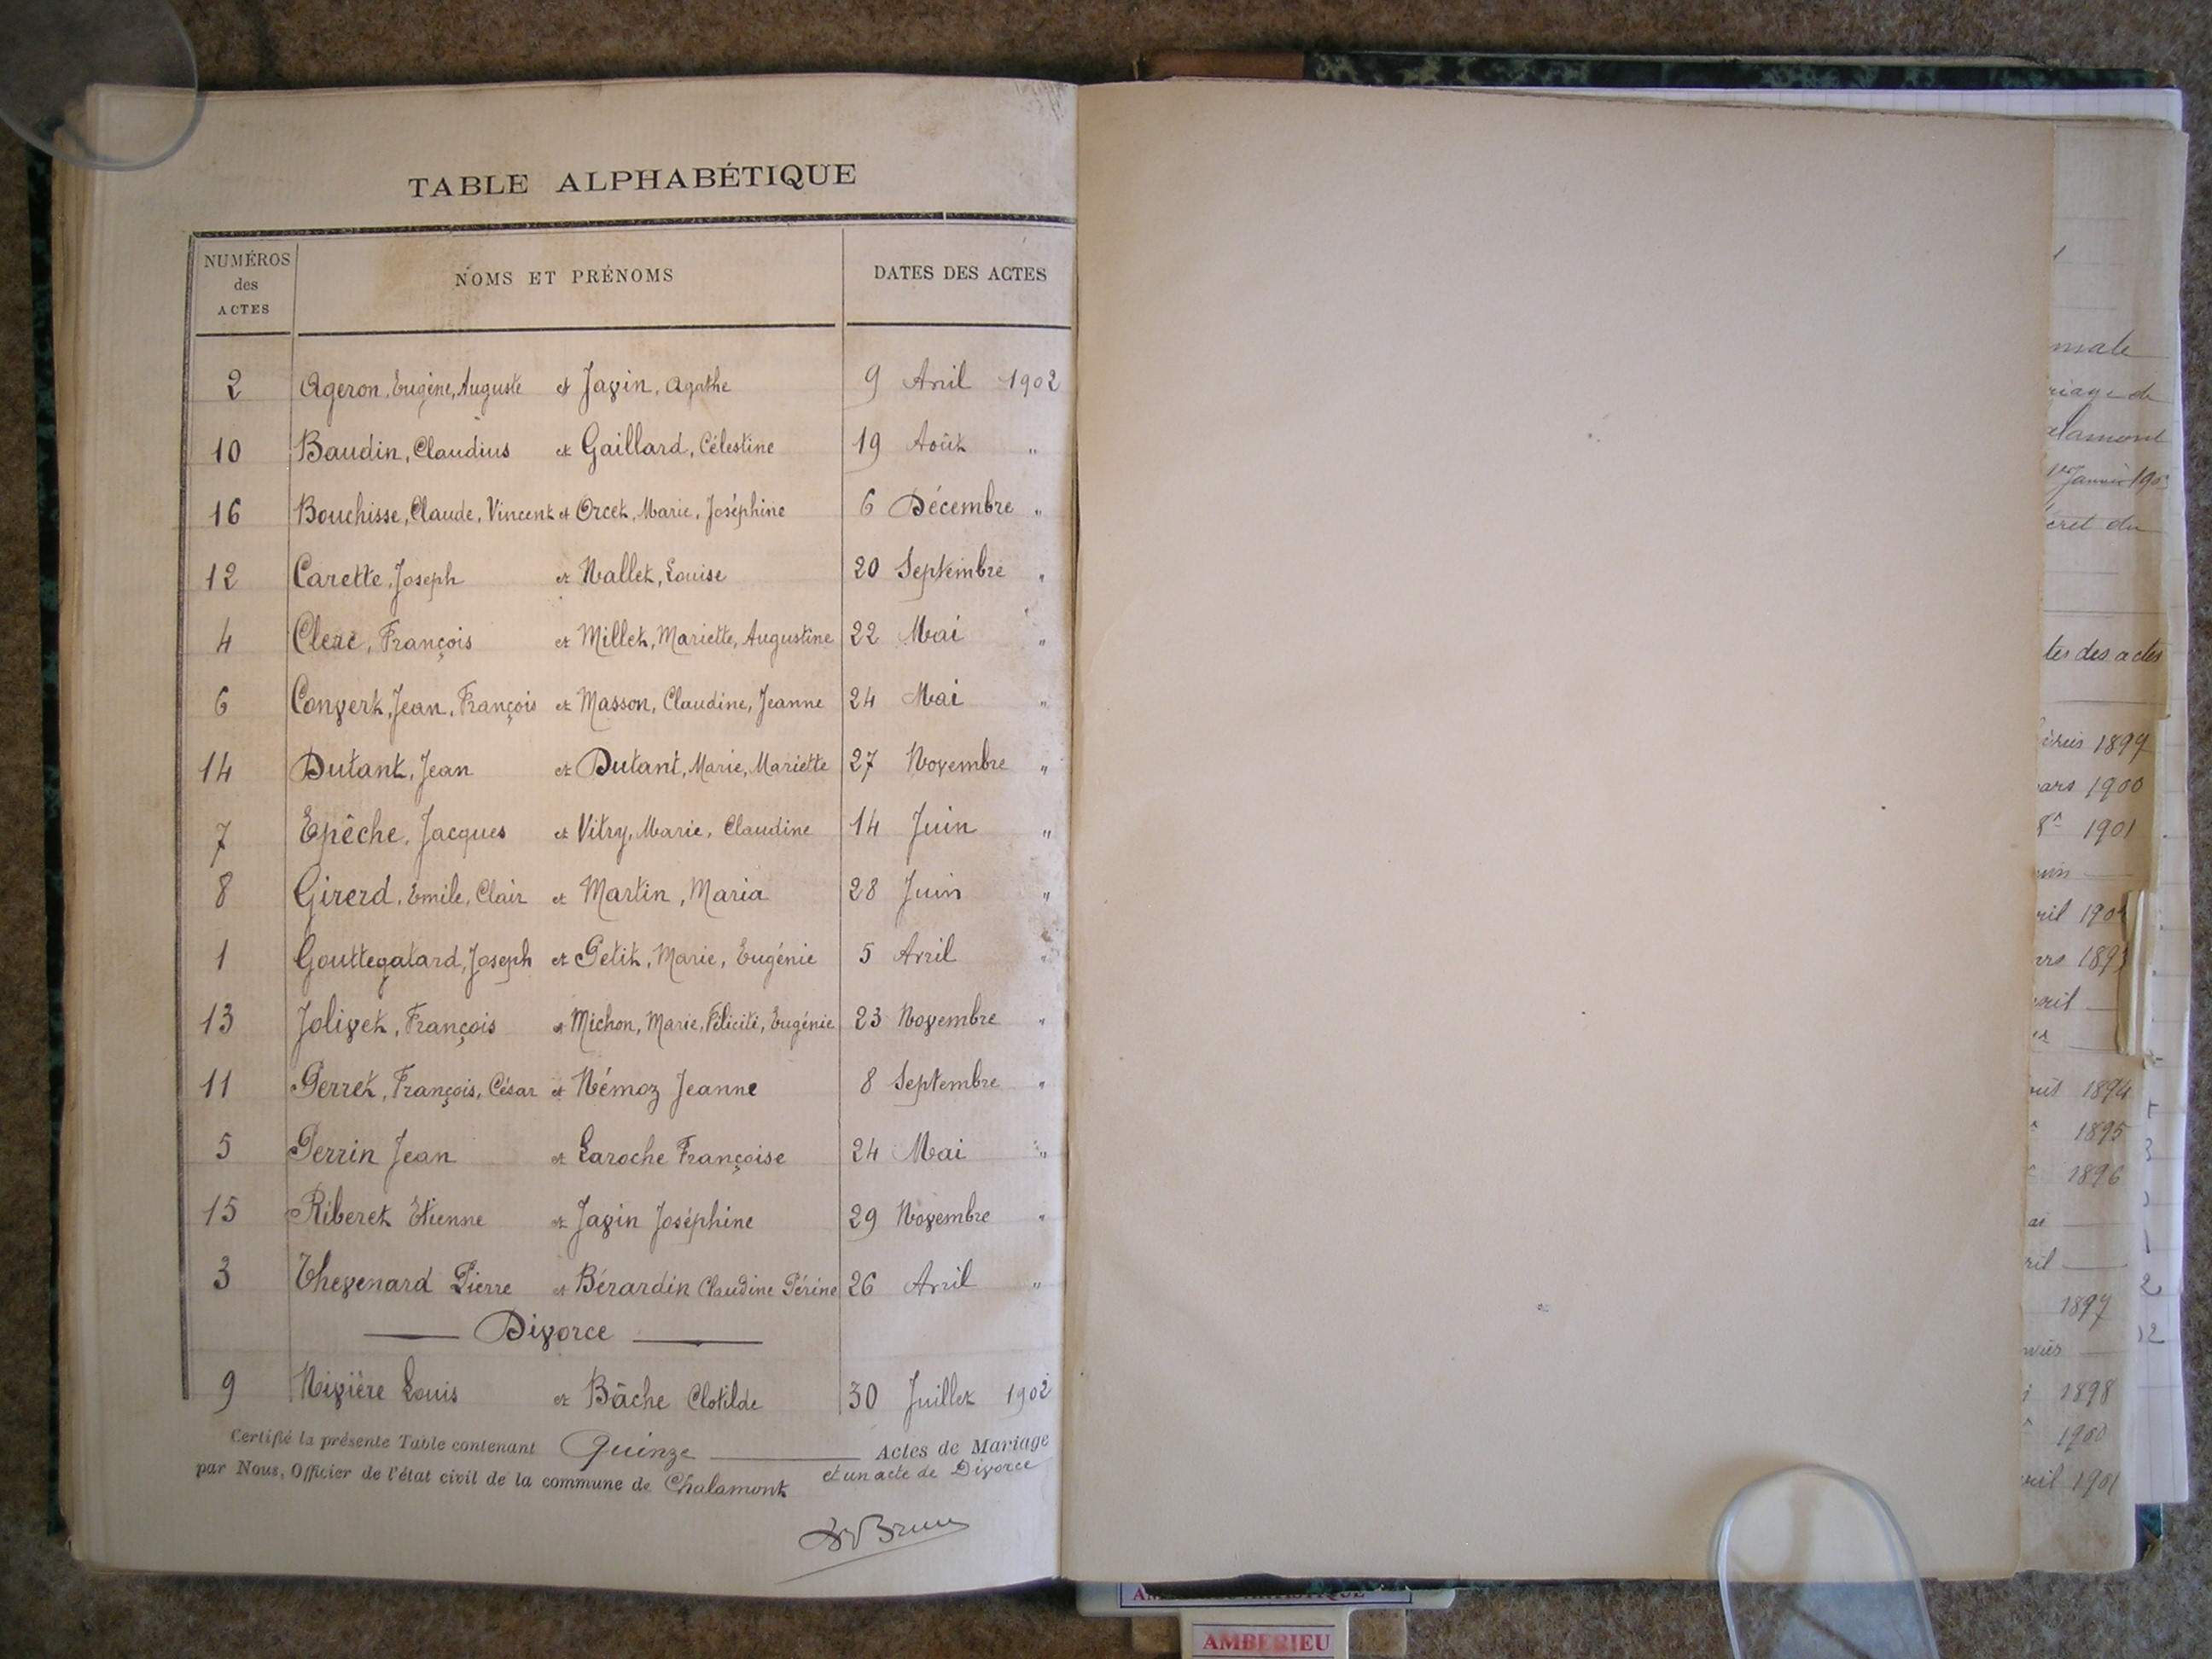 TABLE ALPHABÉTIQUE
NUMÉROS des ACTES
NOMS ET PRÉNOMS
DATES DES ACTES
2 Ageron, Eugène, Auguste et Javin, Agathe 9 Avril 1902
10 Baudin, Claudius et Gaillard, Célestine 19 Août "
16 Bouchisse, Claude, Vincent et Orcet, Marie, Joséphine 6 Décembre "
12 Carette, Joseph et Nallet, Louise 20 Septembre "
4 Clerc, François et Millet, Mariette, Augustine 22 Mai "
6 Convert, Jean, François et Masson, Claudine, Jeanne 24 Mai "
14 Dutant, Jean et Dutant, Marie, Mariette 27 Novembre "
7 Epêche, Jacques et Vitry, Marie, Claudine 14 Juin "
8 Girerd, Emile, Clair et Martin, Maria 28 Juin "
1 Gouttegatard, Joseph et Petit, Marie, Eugénie 5 Avril "
13 Jolivet, François et Michon, Marie, Félicité, Eugénie 23 Novembre "
11 Perret, François, César et Némoz Jeanne 8 Septembre "
5 Perrin Jean et Laroche Françoise 24 Mai "
15 Riberet Etienne et Javin Joséphine 29 Novembre "
3 Thevenard Pierre et Bérardin Claudine Périne 26 Avril "
Divorce
9 Nivière Louis et Bâche Clotilde 30 Juillet 1902
Certifié la présente Table contenant Quinze Actes de Mariage
et un acte de Divorce
par Nous, Officier de l'état civil de la commune de Chalamont
nsate
riage de
alamont
1er Janvier 190
cret du
tes des actes
1899
ars 1900
1901
ril 190
rs 1893
vril
oût 1894
1895
1896
ai
ril
1897
1898
1900
vril 1901
AMBERIEU